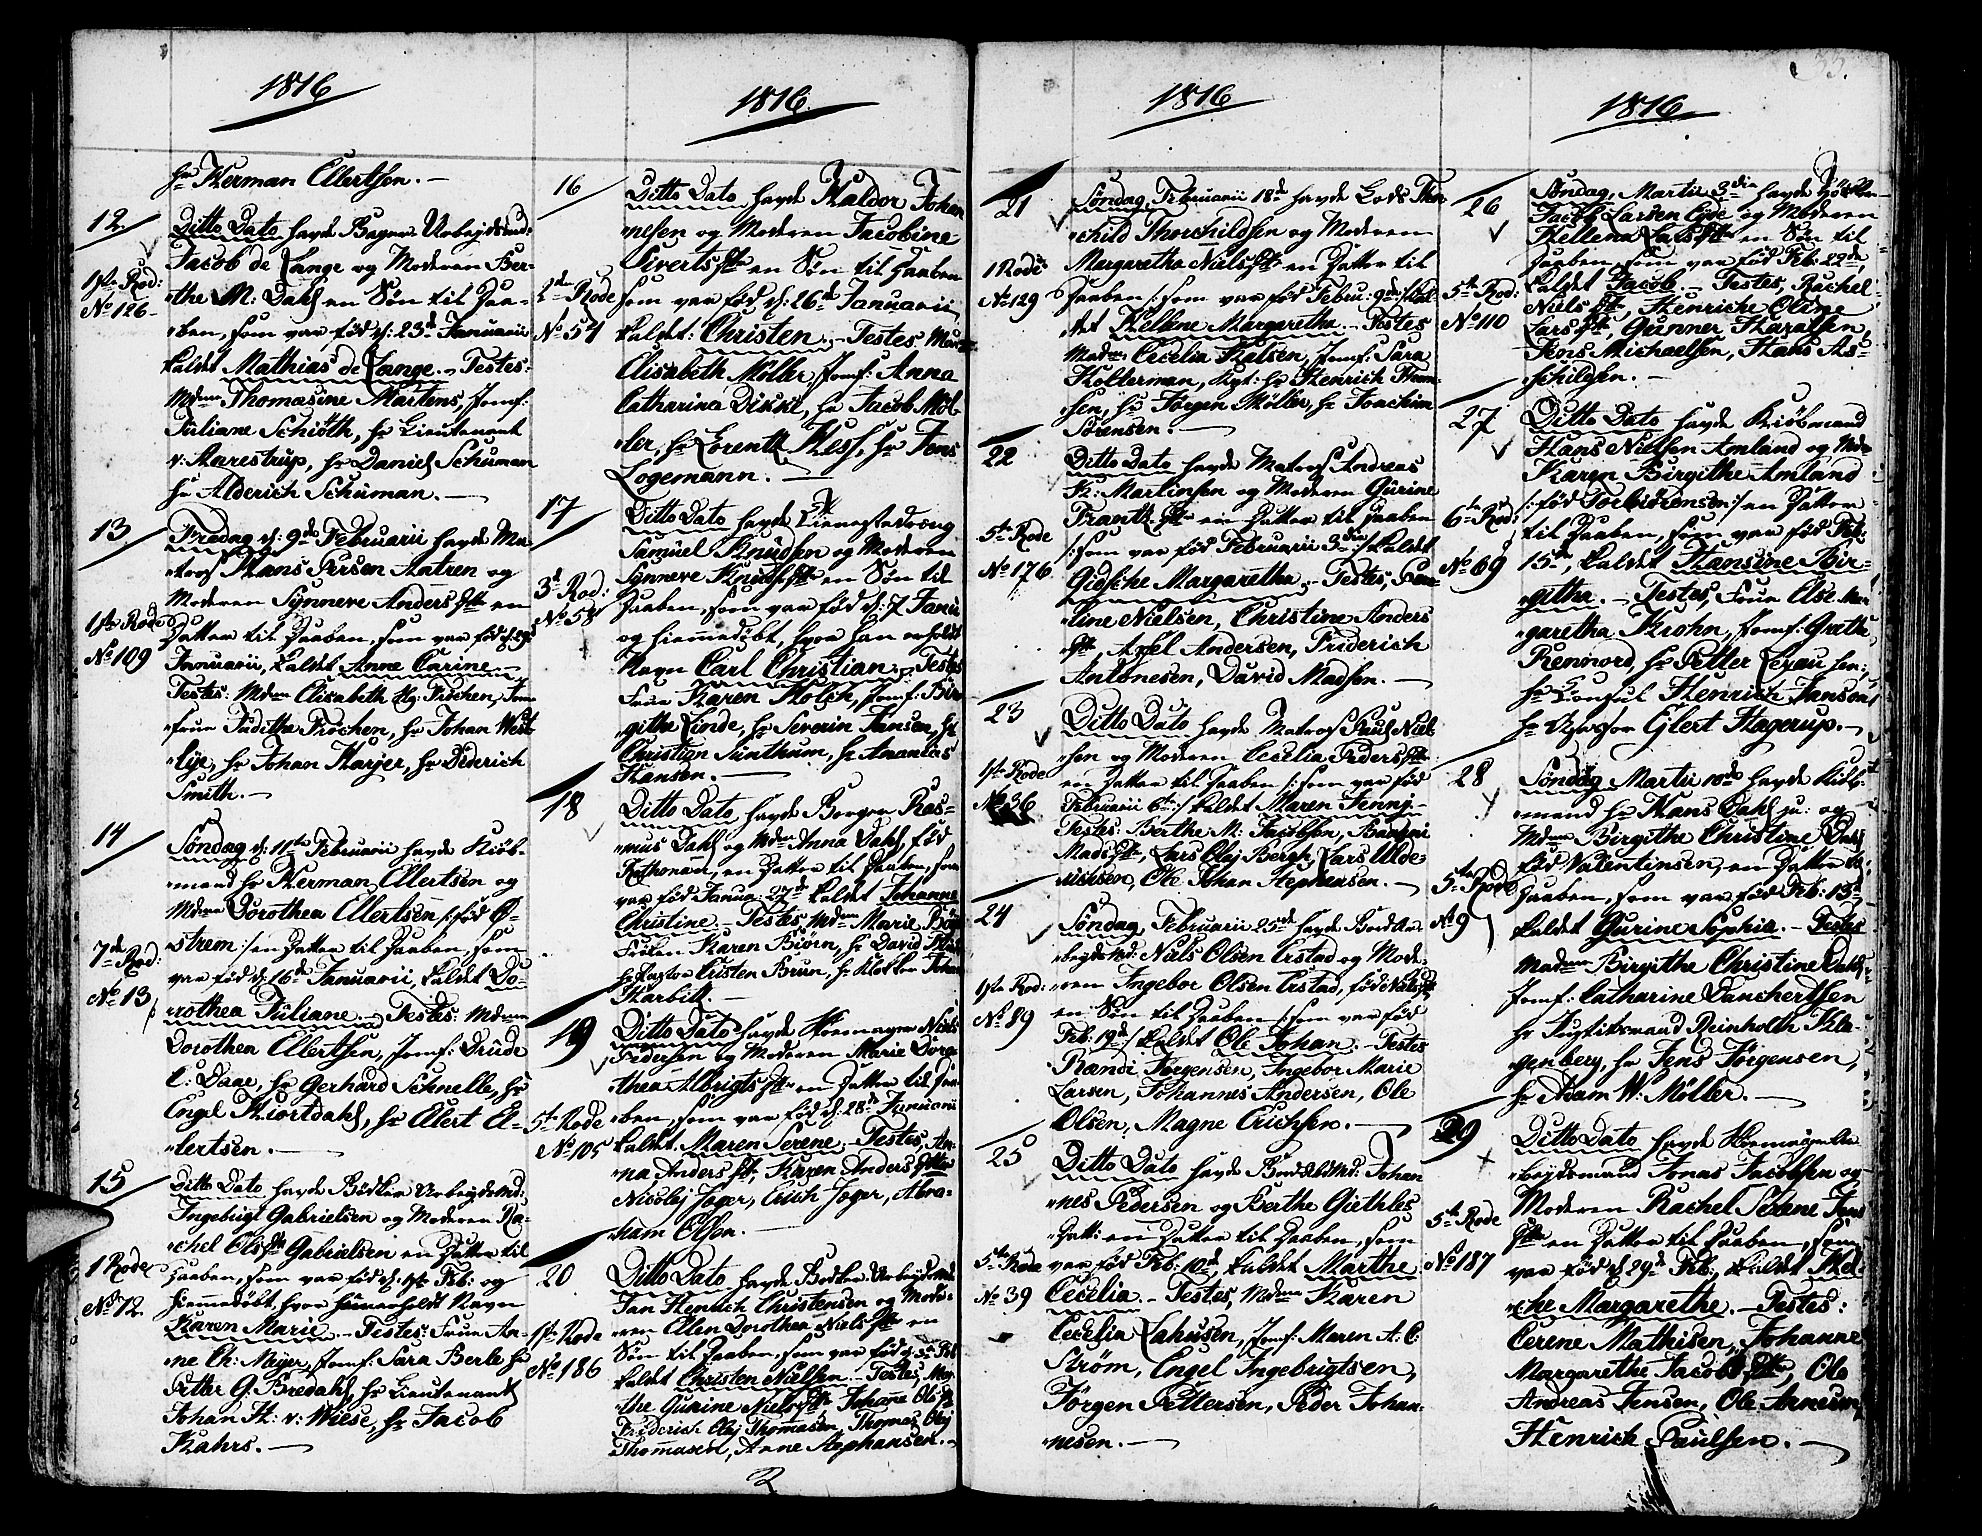 1816
hr Herman Ellertsen. –
12
1ste Rod:
No 126
Ditto Dato havde Bager Arbeidsmd:
Jacob de Lange og Moderen Ber-
the M: Dahl en Søn til Daa-
ben, som var fød d: 23d Januarii
kaldet Mathias de Lange. – Testes:
Mdme Thomasine Martens, Jomf:
Juliane Schiøth, hr Lieutenant
v: Aarestrup, hr Daniel Schuman
hr Alderich Schuman. –
13
1ste Rode
No 109
Fredag d: 9de Februarii havde Ma-
tros Hans Persen Antren og
Moderen Synneve Anders Dtr en
Datter til Daaben, som var fød d: 29d
Januarii, kaldet Anne Carine –
Testes: Mdme Elisabeth Hg: Frøchen, Jom-
frue Juditha Frøchen, hr Johan West-
lye, hr Johan Harjer, hr Diderich
Smith. –
14
7de Rod:
No 13
Søndag d: 11te Februarii havde Kiøb-
mand hr Herman Ellertsen og
Mdme Dorothea Ellertsen /: fød Ø-
strem :/ en Datter til Daaben, som
var fød d: 16de Januarii, kaldet Do-
rothea Juliane. – Testes: Mdme
Dorothea Ellertsen, Jomf: Drude
C: Daae, hr Gerhard Schnelle, hr
Engel Hiortdahl, hr Ellert El-
lertsen. –
15
1 Rode
No 12
Ditto Dato havde Bødker Arbeidsmd:
Ingebrigt Gabrielsen og Moderen Ra-
chel Ols Dtr Gabrielsen en Datter til
Daaben, som var fød d: 1ste Feb: og
hiemmedøbt, hvor hun erholdt Navn
Karen Marie. – Testes: Frue An-
ne Ch: Meyer, Jomf: Sara Berle hr
Petter G. Bredahl, hr Lieutenant
Johan H: v: Wiese, hr Jacob
Kahrs. –
1816
16
2de Rode
No 54
Ditto Dato havde Haldor Johan
nesen og Moderen Jacobine
Siverts Dtr en Søn til Daaben
som var fød d: 26de Januarii
kaldet: Christen. – Testes
Elisabeth Møller, Jomf: Anna
Catharina Dikke, hr Jacob Møl-
ler, hr Lorentz Hess, hr Jens
Logemann. –
17
3d Rod:
No 58
Ditto Dato havde Tienestedreng
Samuel Knudsen og Moderen
Synneve Knuds Dtr en Søn til
Daaben, som var fød d: 7 Janu:
og hiemmedøbt, hvor han erholdt
Navn Carl Christian. – Testes
Frue Karen Holch, Jomf: Bir-
githa Linde, hr Severin Jansen, hr
Christian Sunthum, hr Ananias
Hansen. –
18
Ditto Dato havde Borger Ras-
mus Dahl og Mdme Anna Dahl fød
en Datter til Daaben, som
var fød Janua: 27de kaldet Johanne
Christine. – Testes Mdme Marie
Karen Biørn, hr David
hr Pastor Cristen Brun, hr Klokker Johan
Harbitz. –
19
5te Rode
No 105
Ditto Dato havde Niels
Pedersen og Moderen Marie Doro-
thea Albrigts Dtr en Datter til Daa-
ben, som var fød d: 28de Januarii
kaldet Maren Serene. – Testes An-
na Anders Dtr, Karen Anders Dtr
Nicolay Jager, Erich Jager, Abra-
ham Olsen. –
20
1ste Rode
No 186
Ditto Dato havde Bødker Arbeidsmd
Jan Henrich Christensen og Mode-
ren Ellen Dorothea Niels Dtr en
Søn til Daaben, som var fød d: 3de Feb:
kaldet Christen Nielsen. – Testes,
the Gurine Niels Dtr, Johane Ols Dtr
Friderich Olej Thomasen, Thomas Olej
Thomasen, Anne Asphansen. –
1816
21
1 Rode
No 129
Søndag Februarii 18de havde Lods Thor-
child Thorchildsen og Moderen
Margaretha Niels Dtr en Datter til
Daaben /: som var fød Febru: 9de :/ kal-
det Hellene Margaretha. – Testes
Madme Cecelia Kalsen, Jomf: Sara
Kolterman, Kpt: hr Henrich Tham-
sen, hr Jørgen Møller, hr Joachim
Sørensen. –
22
5te Rode
No 176
Ditto Dato havde Matros Andreas
H: Martinsen og Moderen Gurine
Frantz Dtr en Datter til Daaben
/: som var fød Februarii 3die :/ kaldet
Gidsche Margaretha. – Testes,
line Nielsen, Christine Anders
Dtr, Axel Andersen, Friderich
Antonesen, David Madsen. –
23
1ste Rode
No 36
Ditto Dato havde Matros Paul Niel-
sen og Moderen Cecelia Peders Dtr
en Datter til Daaben /: som var fød
Februarii 6te :/ kaldet Maren Fenni. –
Testes: Berthe M: Jacobsen,
Mads Dtr, Lars Olaj Bergh, Lars Ulde-
richsen, Ole Johan Stephensen. –
24
1ste Rod:
No 89
Søndag Februarii 25de havde BordAr-
beidsmd: Niels Olsen Erstad og Mode-
ren Ingebor Olsen Erstad, fød Niels Dtr
en Søn til Daaben /: som var fød
Feb: 19de :/ kaldet Ole Johan. – Testes
Randi Jørgensen, Ingebor Marie
Larsen, Johannes Andersen, Ole
Olsen, Magne Erichsen. –
25
5te Rode
No 39
Ditto Dato havde Johan-
nes Pedersen og Berthe Giethles
Datt: en Datter til Daaben, som
var fød Feb: 10de, kaldet Marthe
Cecelia. – Testes, Mdme Karen
Cecelia Lahusen, Jomf: Maren A: C:
Strøm, Engel Ingebrigtsen,
Jørgen Pettersen, Peder Johan-
nesen. –
1816
26
5te Rod:
No 110
Søndag, Martii 3die havde
Jacob Larsen Eide og Moderen
Hellena Lars Dtr en Søn til
Daaben, som var fød Feb: 22de,
kaldet Jacob. – Testes, Rachel
Niels Dtr, Henriche Oline
Lars Dtr, Gunner Haralsen,
Jens Michaelsen, Hans As-
schilsen. –
27
6te Rod:
No 69
Ditto Dato havde Kiøbmand
Hans Nielsen Amland og Mdme
Karen Birgithe Amland
/: fød Torbiørensen :/ en Datter
til Daaben, som var fød Feb:
15de, kaldet Hansine Bir-
githa. – Testes, Frue Else Mar-
garetha Krohn, Jomf: Grethe
Rennord, hr Petter Lexau sen:
hr Consul Henrich Jansen,
hr Assessor Eilert Hagerup. –
28
5te Rode
No 9
Søndag Martii 10de havde Kiøb-
mand hr Hans Dahl ju: og
Mdme Birgithe Christine Dahl
fød Valentinsen, en Datter til
Daaben, som var fød Feb: 13de
kaldet Gurine Sophia. – Testes
Madme Birgithe Christine Dahl
Jomf: Catharine Danchertsen
hr Justitsraad Reinholth Kla-
genberg, hr Jens Jørgensen,
hr Adam W: Møller. –
29
5te Rode
No 187
Ditto Dato havde
beidsmand Jonas Jacobsen og
Moderen Rachel Serene Jens
Dtr en Datter til Daaben, som
var fød d: 29de Feb:, kaldet Mel-
che Margarethe. – Testes:
Cerene Mathisen, Johanne
Margarethe Jacobs Dtr, Ole
Andreas Jensen, Ole Arnesen,
Henrich Paulsen. –